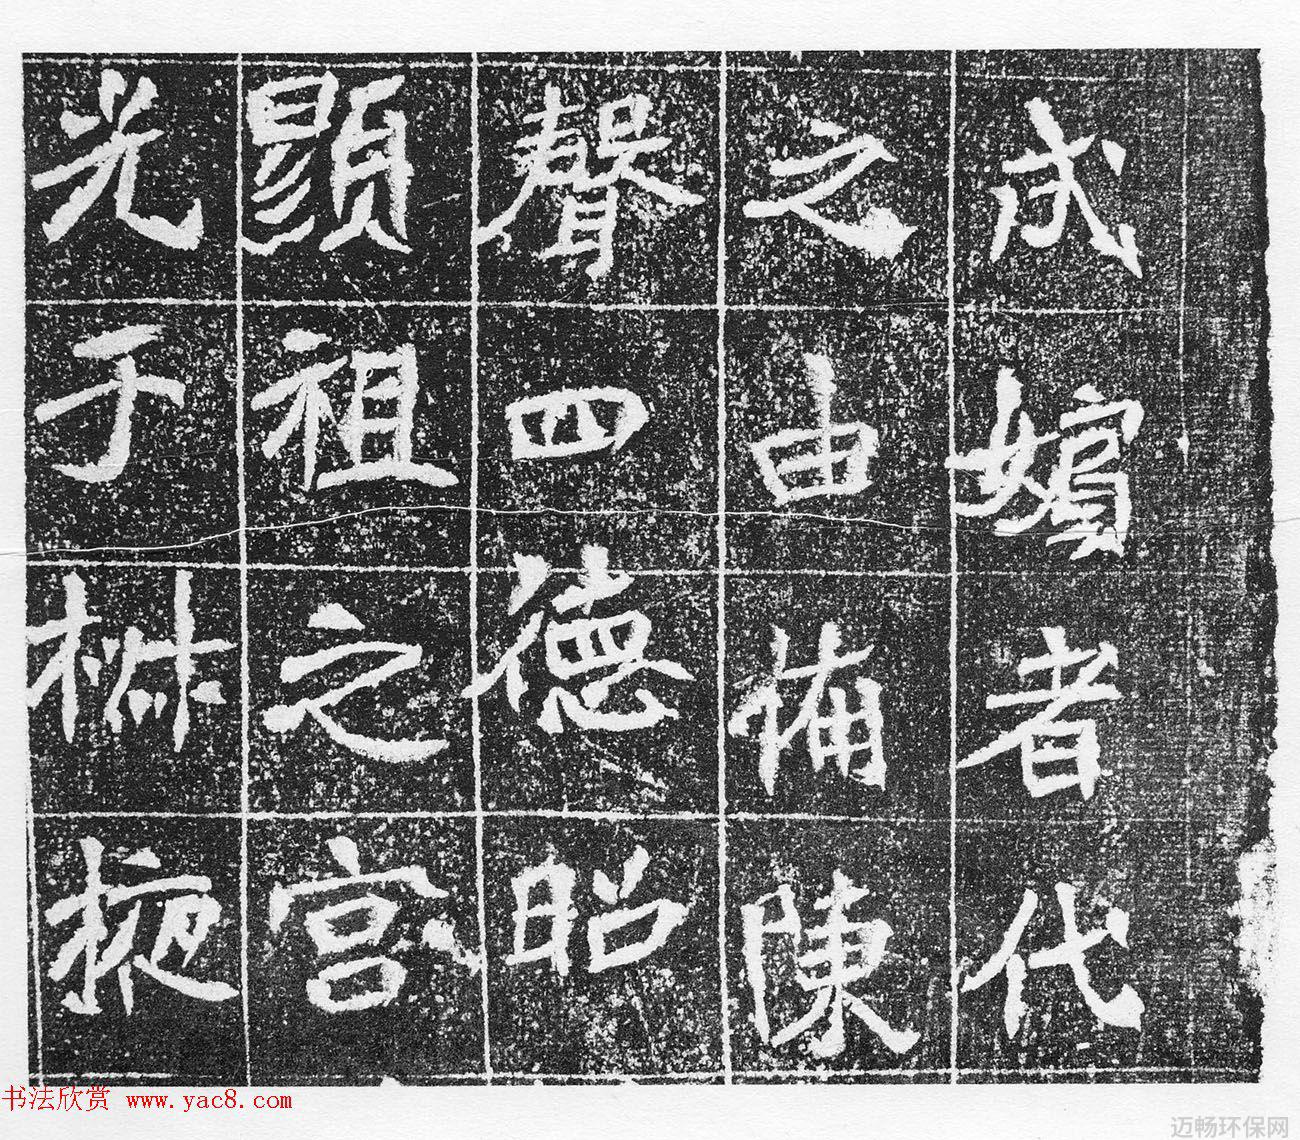 成嬪者代
之由備陳
聲四德昭
顯祖之宮
光于椒掖
书法欣赏 www.yac8.com
迈畅环保网